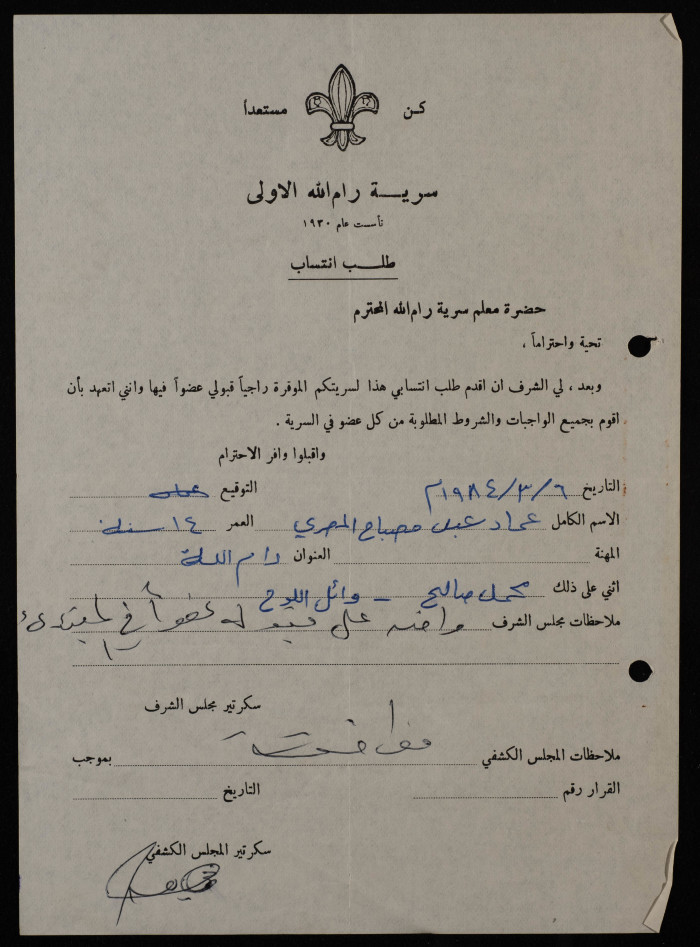 كن مستعداً
سرية رام الله الاولى
تأسست عام ١٩٣٠
طلب انتساب
حضرة معلم سرية رام الله المحترم
تحية واحتراماً ،
وبعد ، لي الشرف ان اقدم طلب انتسابي هذا لسريتكم الموقرة راجياً قبولي عضواً فيها وانني اتعهد بأن
اقوم بجميع الواجبات والشروط المطلوبة من كل عضو في السرية .
واقبلوا وافر الاحترام
التاريخ ٦/٣/١٩٨٤م التوقيع
الاسم الكامل عماد عبد مصباح المصري العمر ١٤ سنة
المهنة العنوان رام الله
اثني على ذلك محمد صالح - وائل اللوح
ملاحظات مجلس الشرف وافق على قبوله عضواً في
سكرتير مجلس الشرف
ملاحظات المجلس الكشفي موافقة بموجب
القرار رقم التاريخ
سكرتير المجلس الكشفي